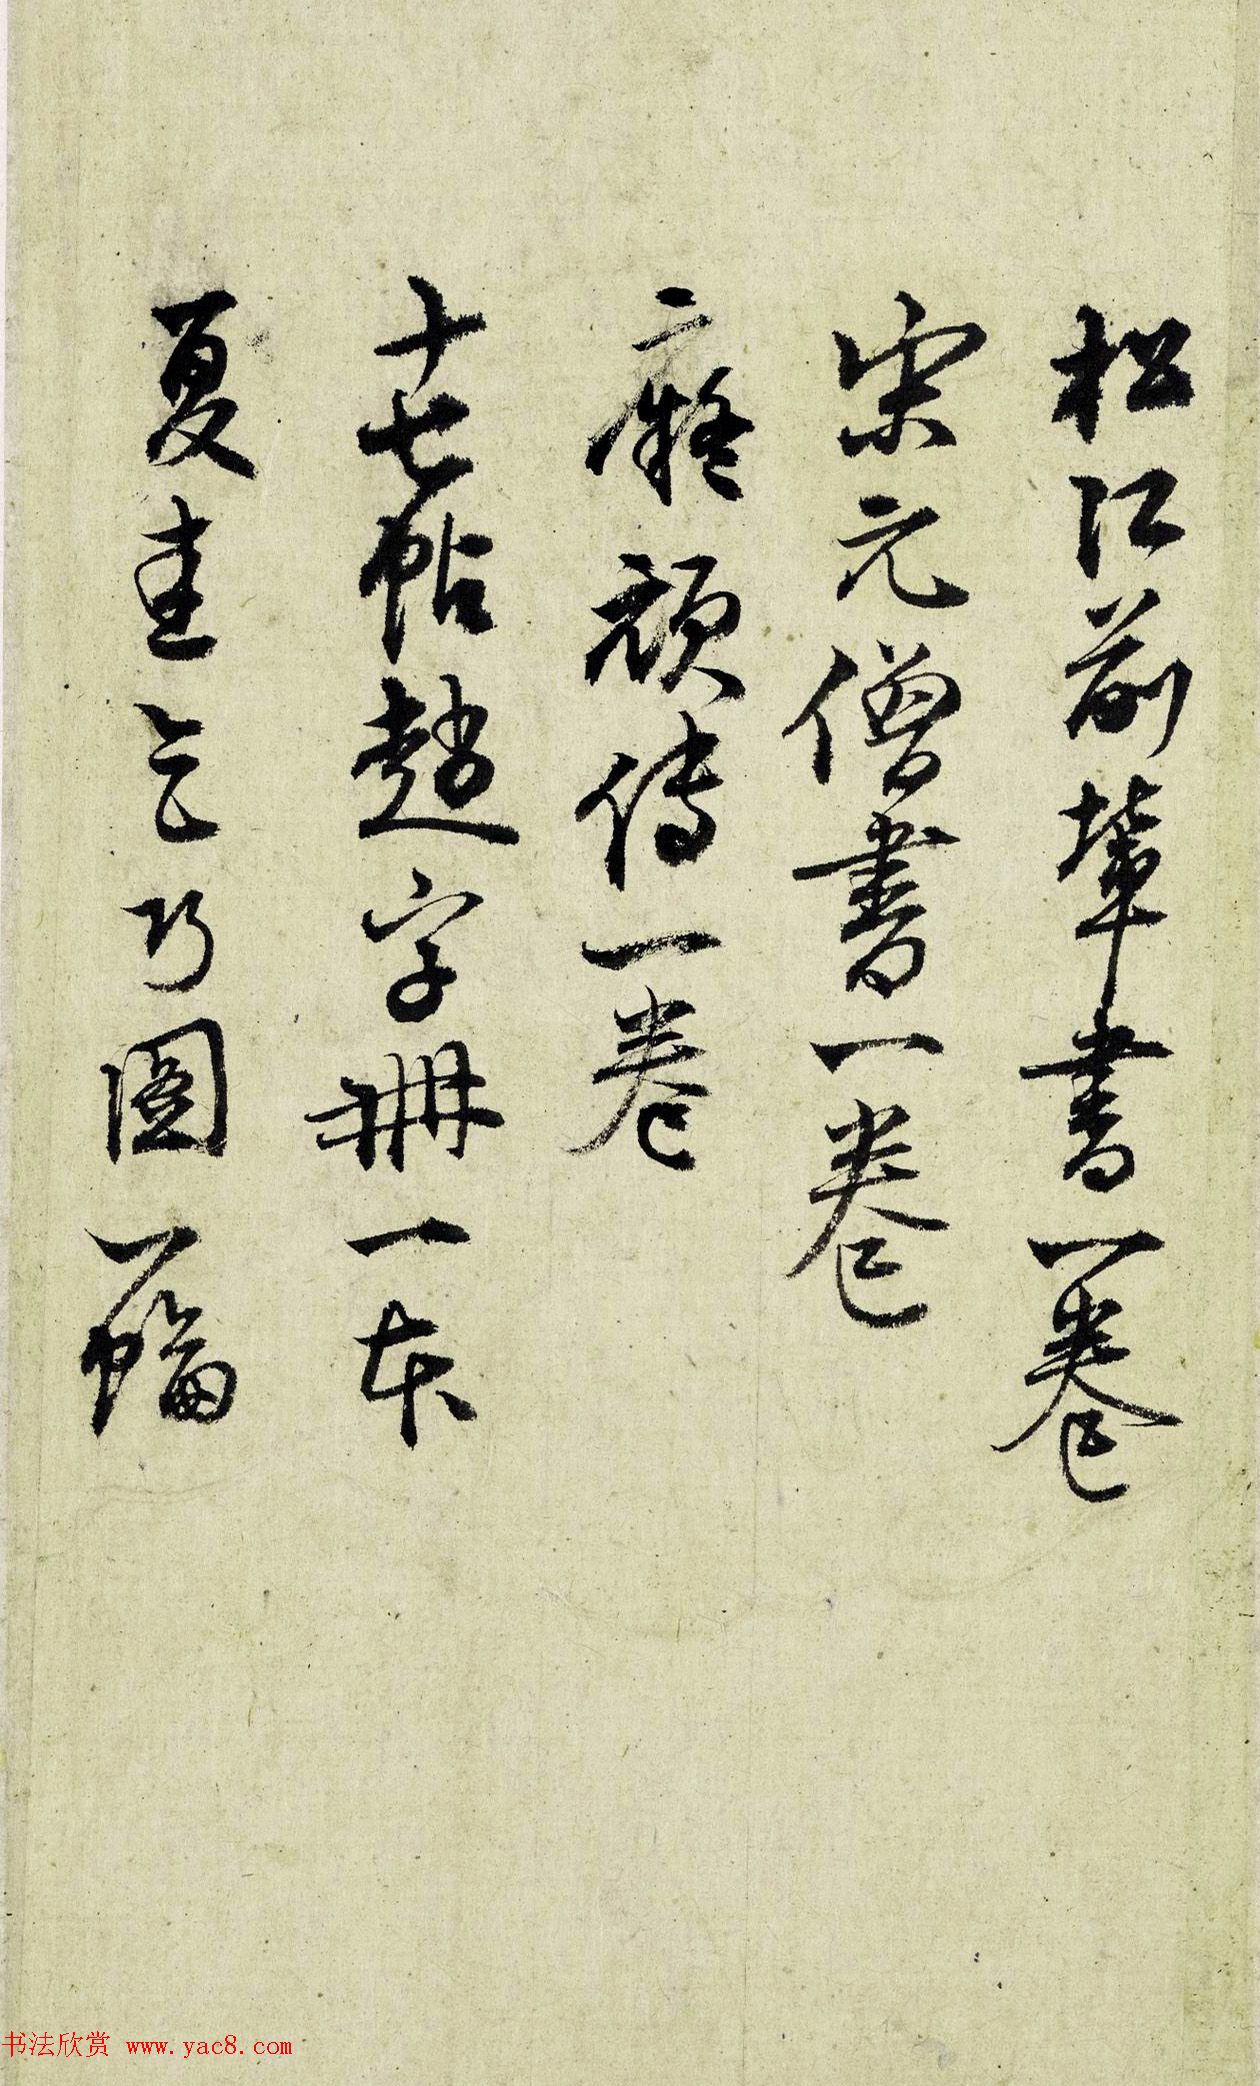 松江前輩書一卷
宋元僧書一卷
二癡頑傳一卷
十七帖趙字冊一本
夏圭乞巧圖一幅
书法欣赏 www.yac8.com